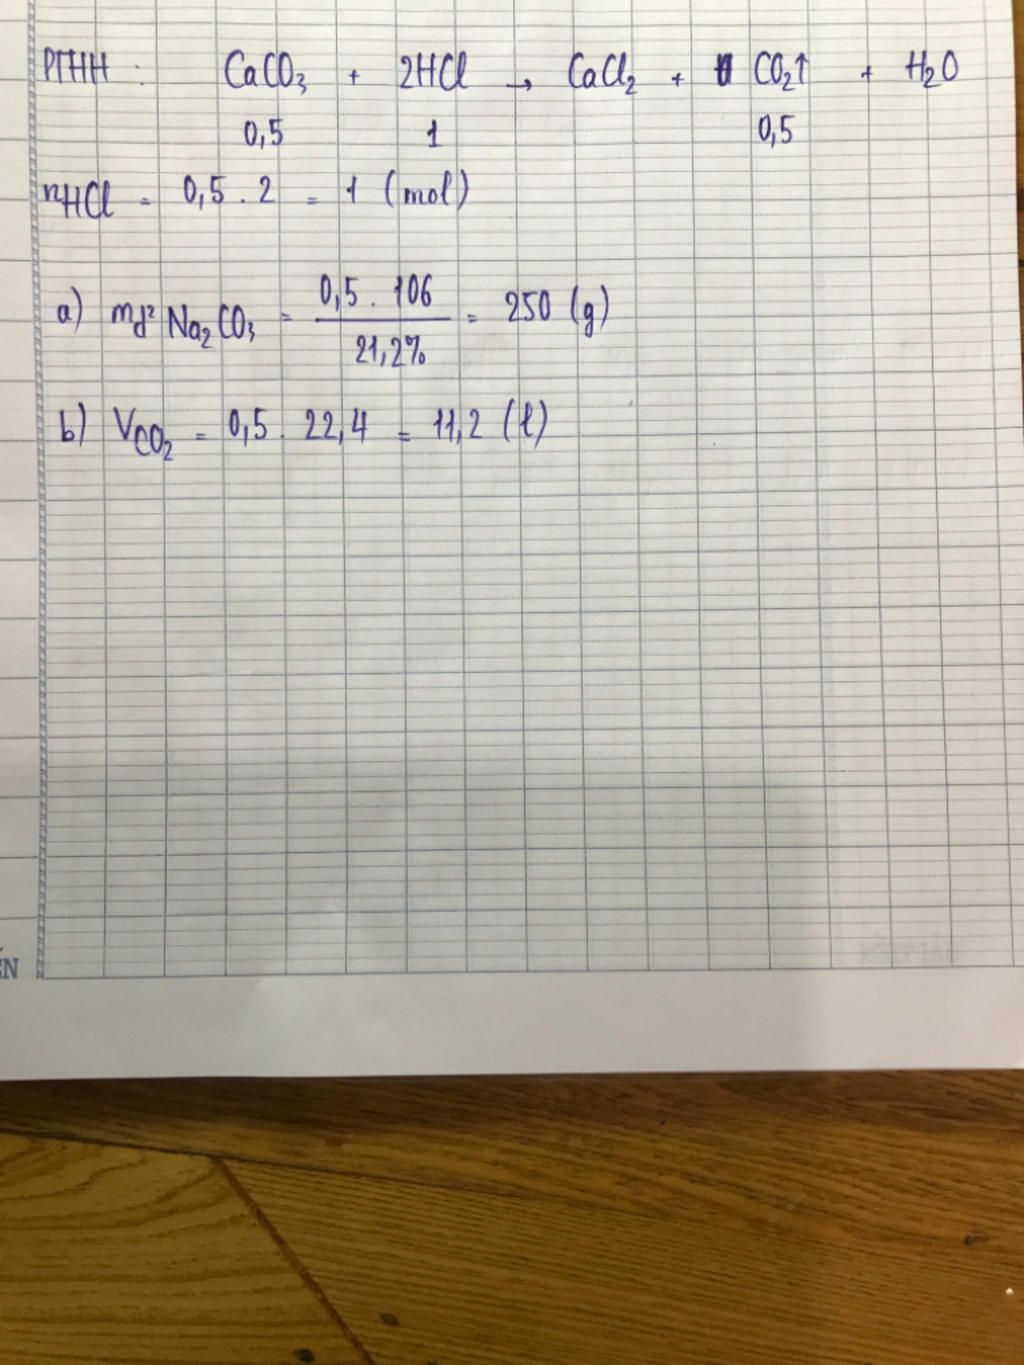 PTHH : CaCO₃ + 2HCl → CaCl₂ + CO₂↑ + H₂O
0,5 1 0,5
nHCl = 0,5 . 2 = 1 (mol)
a) md² Na₂CO₃ = 0,5 . 106 / 21,2% = 250 (g)
b) VCO₂ = 0,5 . 22,4 = 11,2 (l)